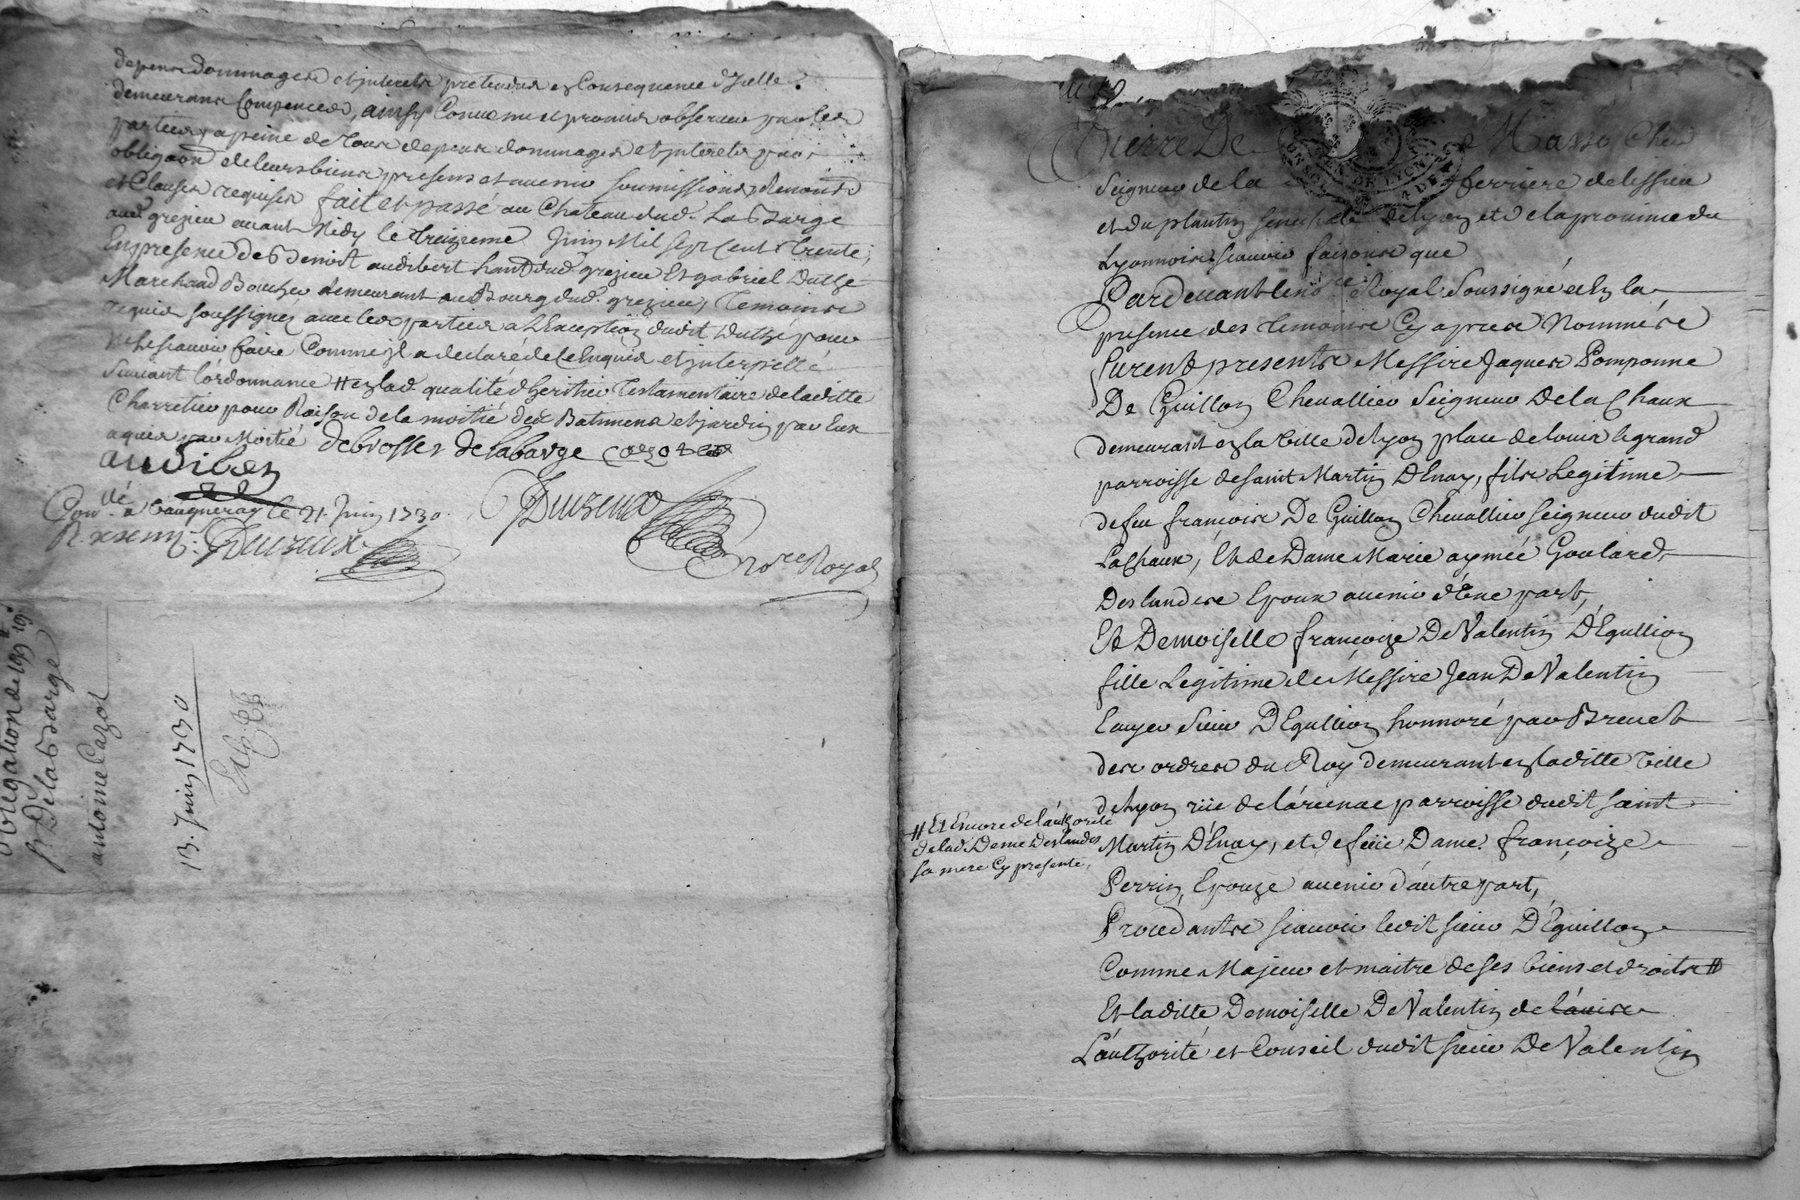 depens dommages et interets pretendus en Consequence d'Icelle
demeurans Compencés, ainsy Convenu et promis observer par les
parties a peine de tous depens dommages et interets par
obligaon de leurs biens presens et avenir soumissions, Renonces
et Clauses requises fait et passé au Chateau dud. La Barge
aud grezieu avant Midy le treizieme Juin Mil sept Cent Trente;
En presence de Benoit audibert habt dud grezieu Et gabriel
Marchand Boucher demeurant au Bourg dud. grezieu, Temoins
requis soussignez avec les parties a L'Exception dudit pour
ne le scavoir faire Comme jl a declaré de ce Enquis et interpellé
Suivant l'ordonnance # en lad. qualité d'heritier Testamentaire de laditte
Charretier pour Raison de la moitié des Batimens et jardin par Eux
aquis par Moitié debrosses de labarge cozot
audiber
Con.lé a Vaugneray le 21 Juin 1730.
Duzeux
No.re Royal
obligation de
Sr De la Barge
antoine Cazot
13. Juin 1730
Pierre De Masso Cher
Seigneur de la ferriere de lissieu
et du plantin senechal de lyon et de la province du
Lyonnois scavoir faisons que
Pardevant le no.re Royal Soussigné et En la
presence des temoins Cy apres Nommés
Furent presents Messire Jaques Pomponne
De Guillon Chevallier Seigneur De la Chaux
demeurant en la Ville de lyon place de louis le grand
parroisse de saint Martin D'Enay, fils Legitime
de feu françois De Guillon Chevallier seigneur dudit
La Chaux, Et de Dame Marie aymée Goulard
Deslandes Epoux avenir d'Une part,
Et Demoiselle françoize De Valentin D'Eguillion
fille Legitime de Messire Jean De Valentin
Ecuyer Sieur D'Eguillion honnoré par Brevet
des ordres du Roy demeurant en laditte Ville
de lyon rüe de l'arcenac parroisse dudit saint
Martin D'Enay, et de feüe Dame françoize
Perrin, Epouze avenir d'autre part,
Procedants scavoir ledit sieur D'Eguillon
Comme Majeur et maitre de ses biens et droits #
# Et Encore de l'authorité
de lad. Dame Deslandes
sa mere Cy presente,
Et laditte Demoiselle De Valentin de l'avis
L'authorité et Conseil dudit sieur De Valentin